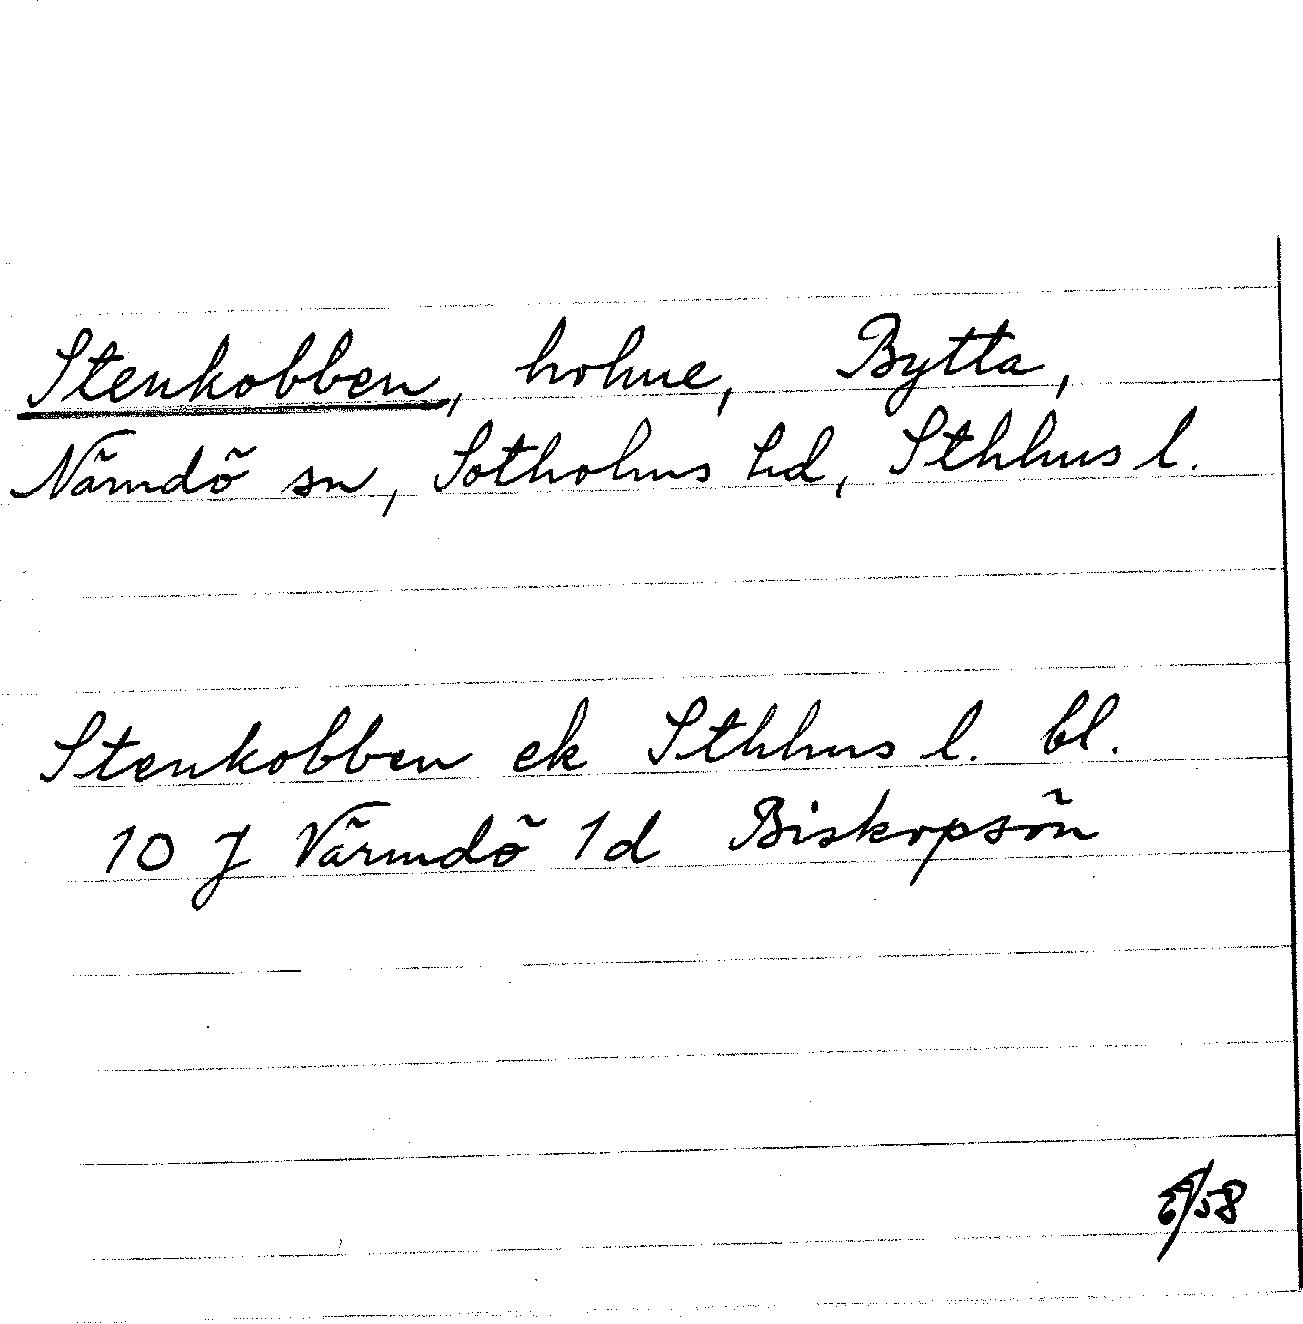 Stenkobben, holme, Bytta,
Nämdö sn, Sotholms hd, Sthlms l.
Stenkobben ek Sthlms l. bl.
10 J Värmdö 1d Biskopsön